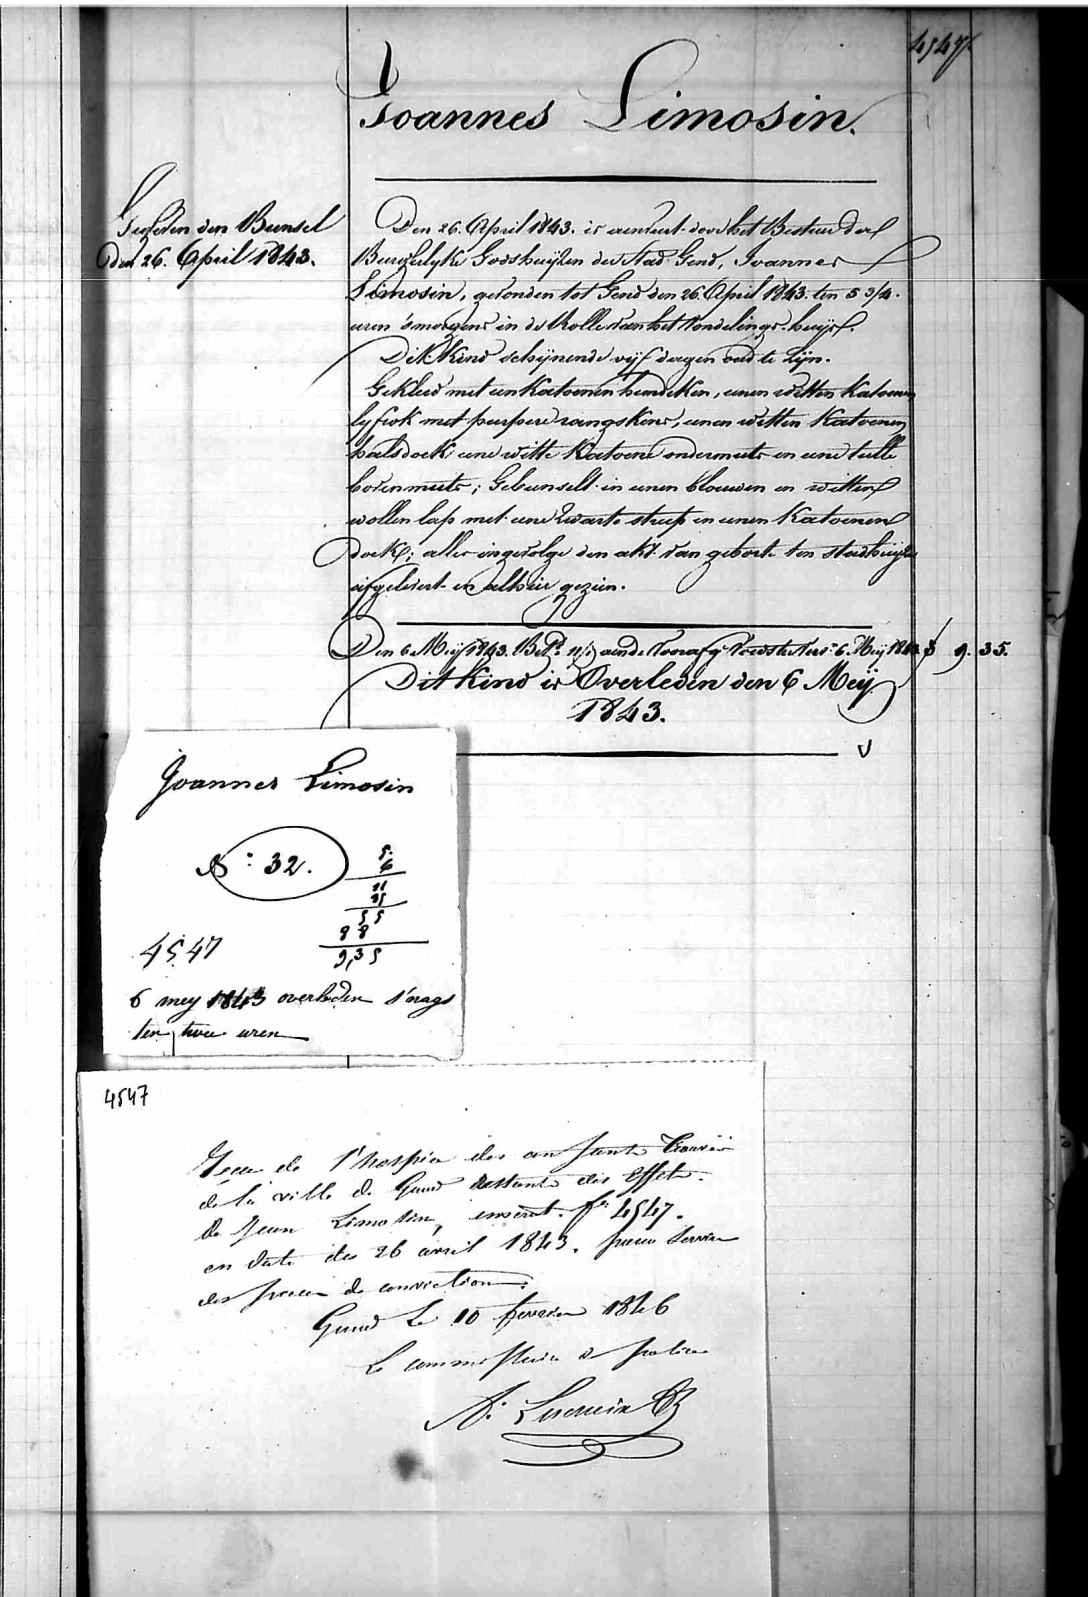 4547
Joannes Limosin.
den Bunsel
den 26. April 1843.
Den 26. April 1843. is aenveert door het Bestuer der
Burgerlyke Godshuijzen der Stad Gend, Joannes
Limosin, gevonden tot Gend den 26. April 1843. ten 5 3/4.
uren 'smorgens in de Rolle van het Vondelings-huijs.
Dit Kind schijnende vijf dagen oud te zijn.
Gekleed met een Katoenen hemdeken, eenen witten Katoenen
lyfrok met purpere rangskens, eenen witten Katoenen
halsdoek eene witte Katoene ondermuts en eene tulle
bovenmuts; Gebunselt in eenen blauwen en witten
wollen lap met eene zwarte streep en eenen Katoenen
doek; alles ingevolge den akt van geboorte ten stadhuijze
afgelevert en alhier gezien.
Den 6 Meij 1843. Bet.d aen de Voedster 6. Meij 1843. f 9. 35.
Dit Kind is Overleden den 6 Meij
1843.
Joannes Limosin
N.º 32.
5.
6
11
55
88
9,35
4547
6 mey 1843 overleden s'nags
ten twee uren
4547
Reçu de l'hospice des enfants trouvés
de la ville de Gand des Effets
de Jean Limosin, inscrit f.º 4547.
en date du 26 avril 1843. pour servir
des pieces de conviction.
Gand Le 10 fevrier 1846
Le commissaire de police